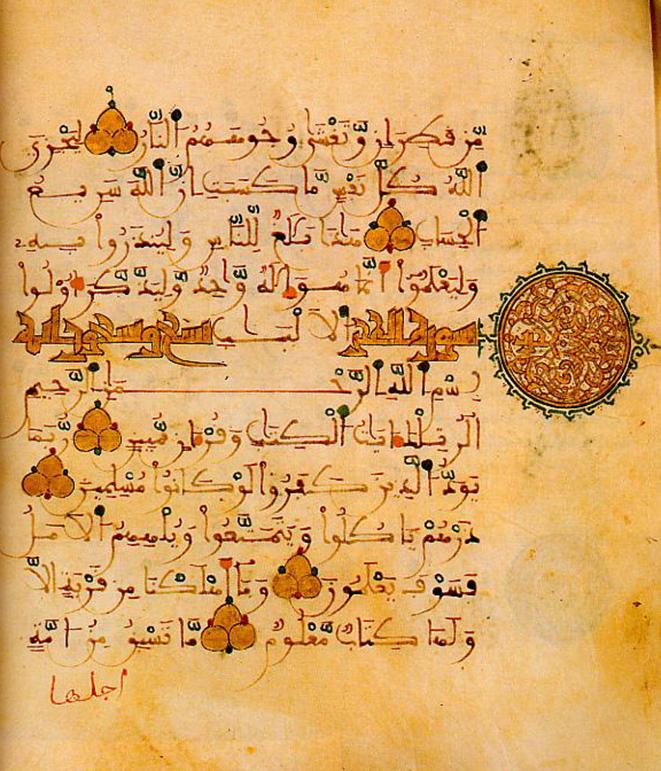 مِّن قَطِرَانٍ وَّتَغْشَىٰ وُجُوهَهُمُ النَّارُ لِيَجْزِيَ
اللَّهُ كُلَّ نَفْسٍ مَّا كَسَبَتْ إِنَّ اللَّهَ سَرِيعُ
الْحِسَابِ هَٰذَا بَلَٰغٌ لِّلنَّاسِ وَلِيُنذَرُوا بِهِ
وَلِيَعْلَمُوا أَنَّمَا هُوَ إِلَٰهٌ وَّاحِدٌ وَلِيَذَّكَّرَ أُوْلُوا
سورة الحجر الْأَلْبَٰبِ تسع وتسعون اية
بِسْمِ اللَّهِ الرَّحْمَٰنِ الرَّحِيمِ
الر تِلْكَ ءَايَٰتُ الْكِتَٰبِ وَقُرْءَانٍ مُّبِينٍ رُّبَمَا
يَوَدُّ الَّذِينَ كَفَرُوا لَوْ كَانُوا مُسْلِمِينَ
ذَرْهُمْ يَأْكُلُوا وَيَتَمَتَّعُوا وَيُلْهِهِمُ الْأَمَلُ
فَسَوْفَ يَعْلَمُونَ وَمَا أَهْلَكْنَا مِن قَرْيَةٍ إِلَّا
وَلَهَا كِتَابٌ مَّعْلُومٌ مَّا تَسْبِقُ مِنْ أُمَّةٍ
اجلها